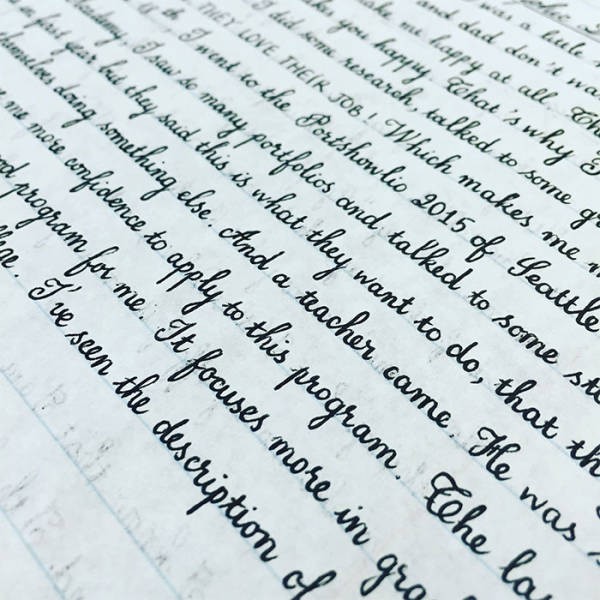 was a little
and dad don't wa
ke me happy at all.
you happy That's why I
THEY LOVE THEIR JOB! Which makes me
I did some research, talked to some gr
I went to the Portshowlio 2015 of Seattle
I saw so many portfolios and talked to some stu
first year but they said this is what they want to do, that th
themselves doing something else. And a teacher came. He was s
me more confidence to apply to this program. The la
program for me. It focuses more in gra
I've seen the description of